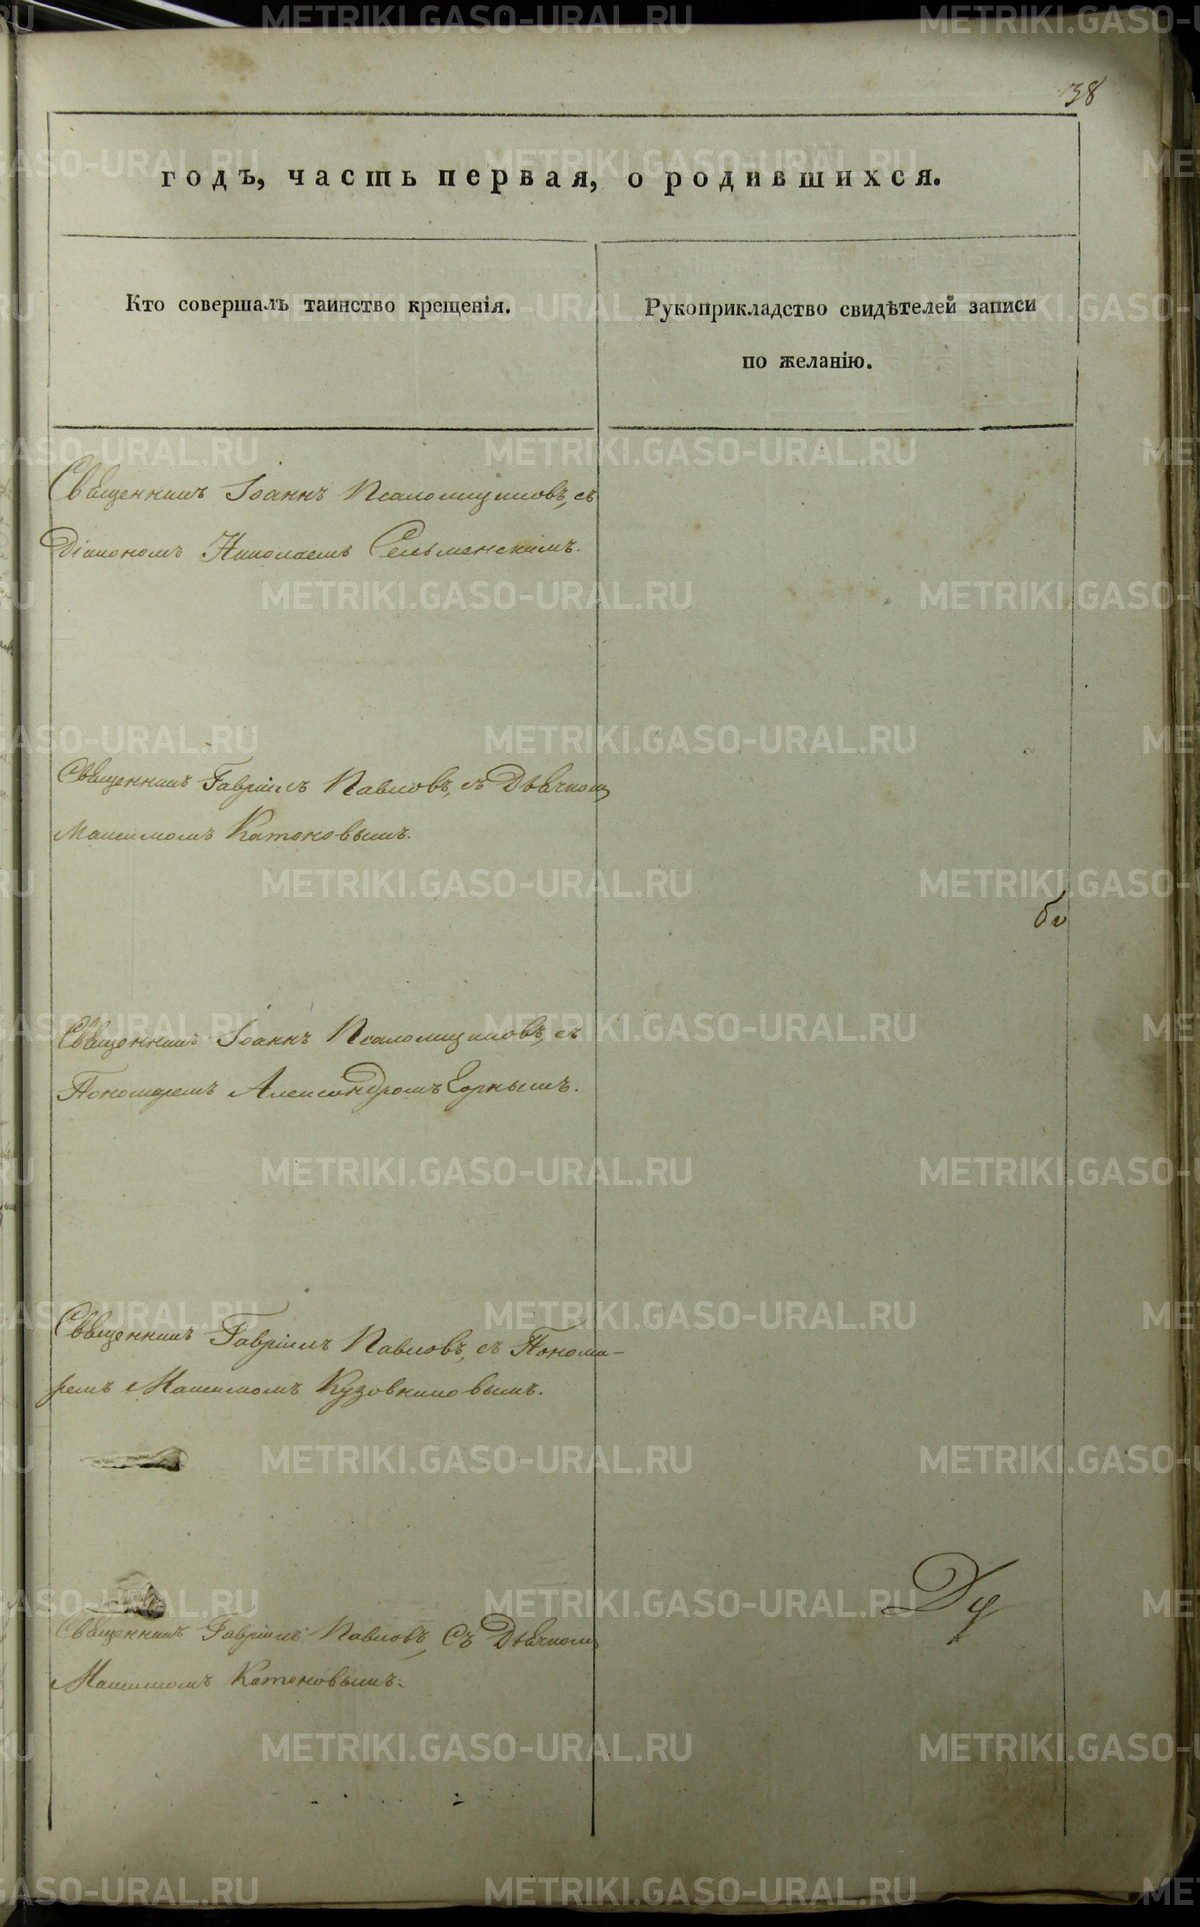 38
годъ, часть первая, о родившихся.
Кто совершалъ таинство крещенія.
Рукоприкладство свидѣтелей записи
по желанію.
Священникъ Іоаннъ Псаломщиковъ, съ
Діакономъ Николаемъ Сельменскимъ.
Священникъ Гавріилъ Павловъ, съ Дьячкомъ
Максимомъ Катоковымъ.
Священникъ Іоаннъ Псаломщиковъ, съ
Пономаремъ Александромъ Горнымъ.
Священникъ Гавріилъ Павловъ, съ Понома-
ремъ Максимомъ Кузовниковымъ.
Священникъ Гавріилъ Павловъ, Съ Дьячкомъ
Максимомъ Катоковымъ.
METRIKI.GASO-URAL.RU